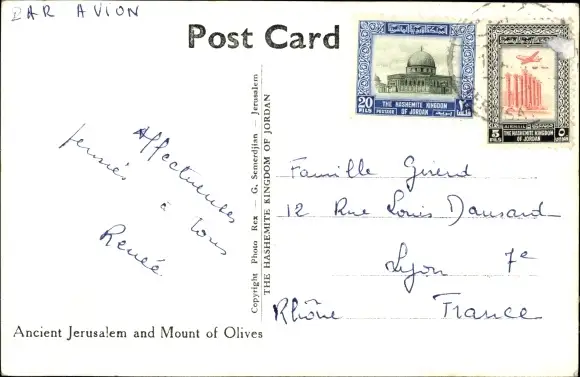 PAR AVION
Post Card
20 FILS
THE HASHEMITE KINGDOM
POSTAGE OF JORDAN
٢٠
AIRMAIL
5 FILS
THE HASHEMITE KINGDOM
OF JORDAN
٥
Affectueuses
pensées à tous
Renée
Copyright Photo Rex — G. Semerdjian — Jerusalem
THE HASHEMITE KINGDOM OF JORDAN
Famille Girerd
12 Rue Louis Dansard
Lyon 7e
Rhône France
Ancient Jerusalem and Mount of Olives